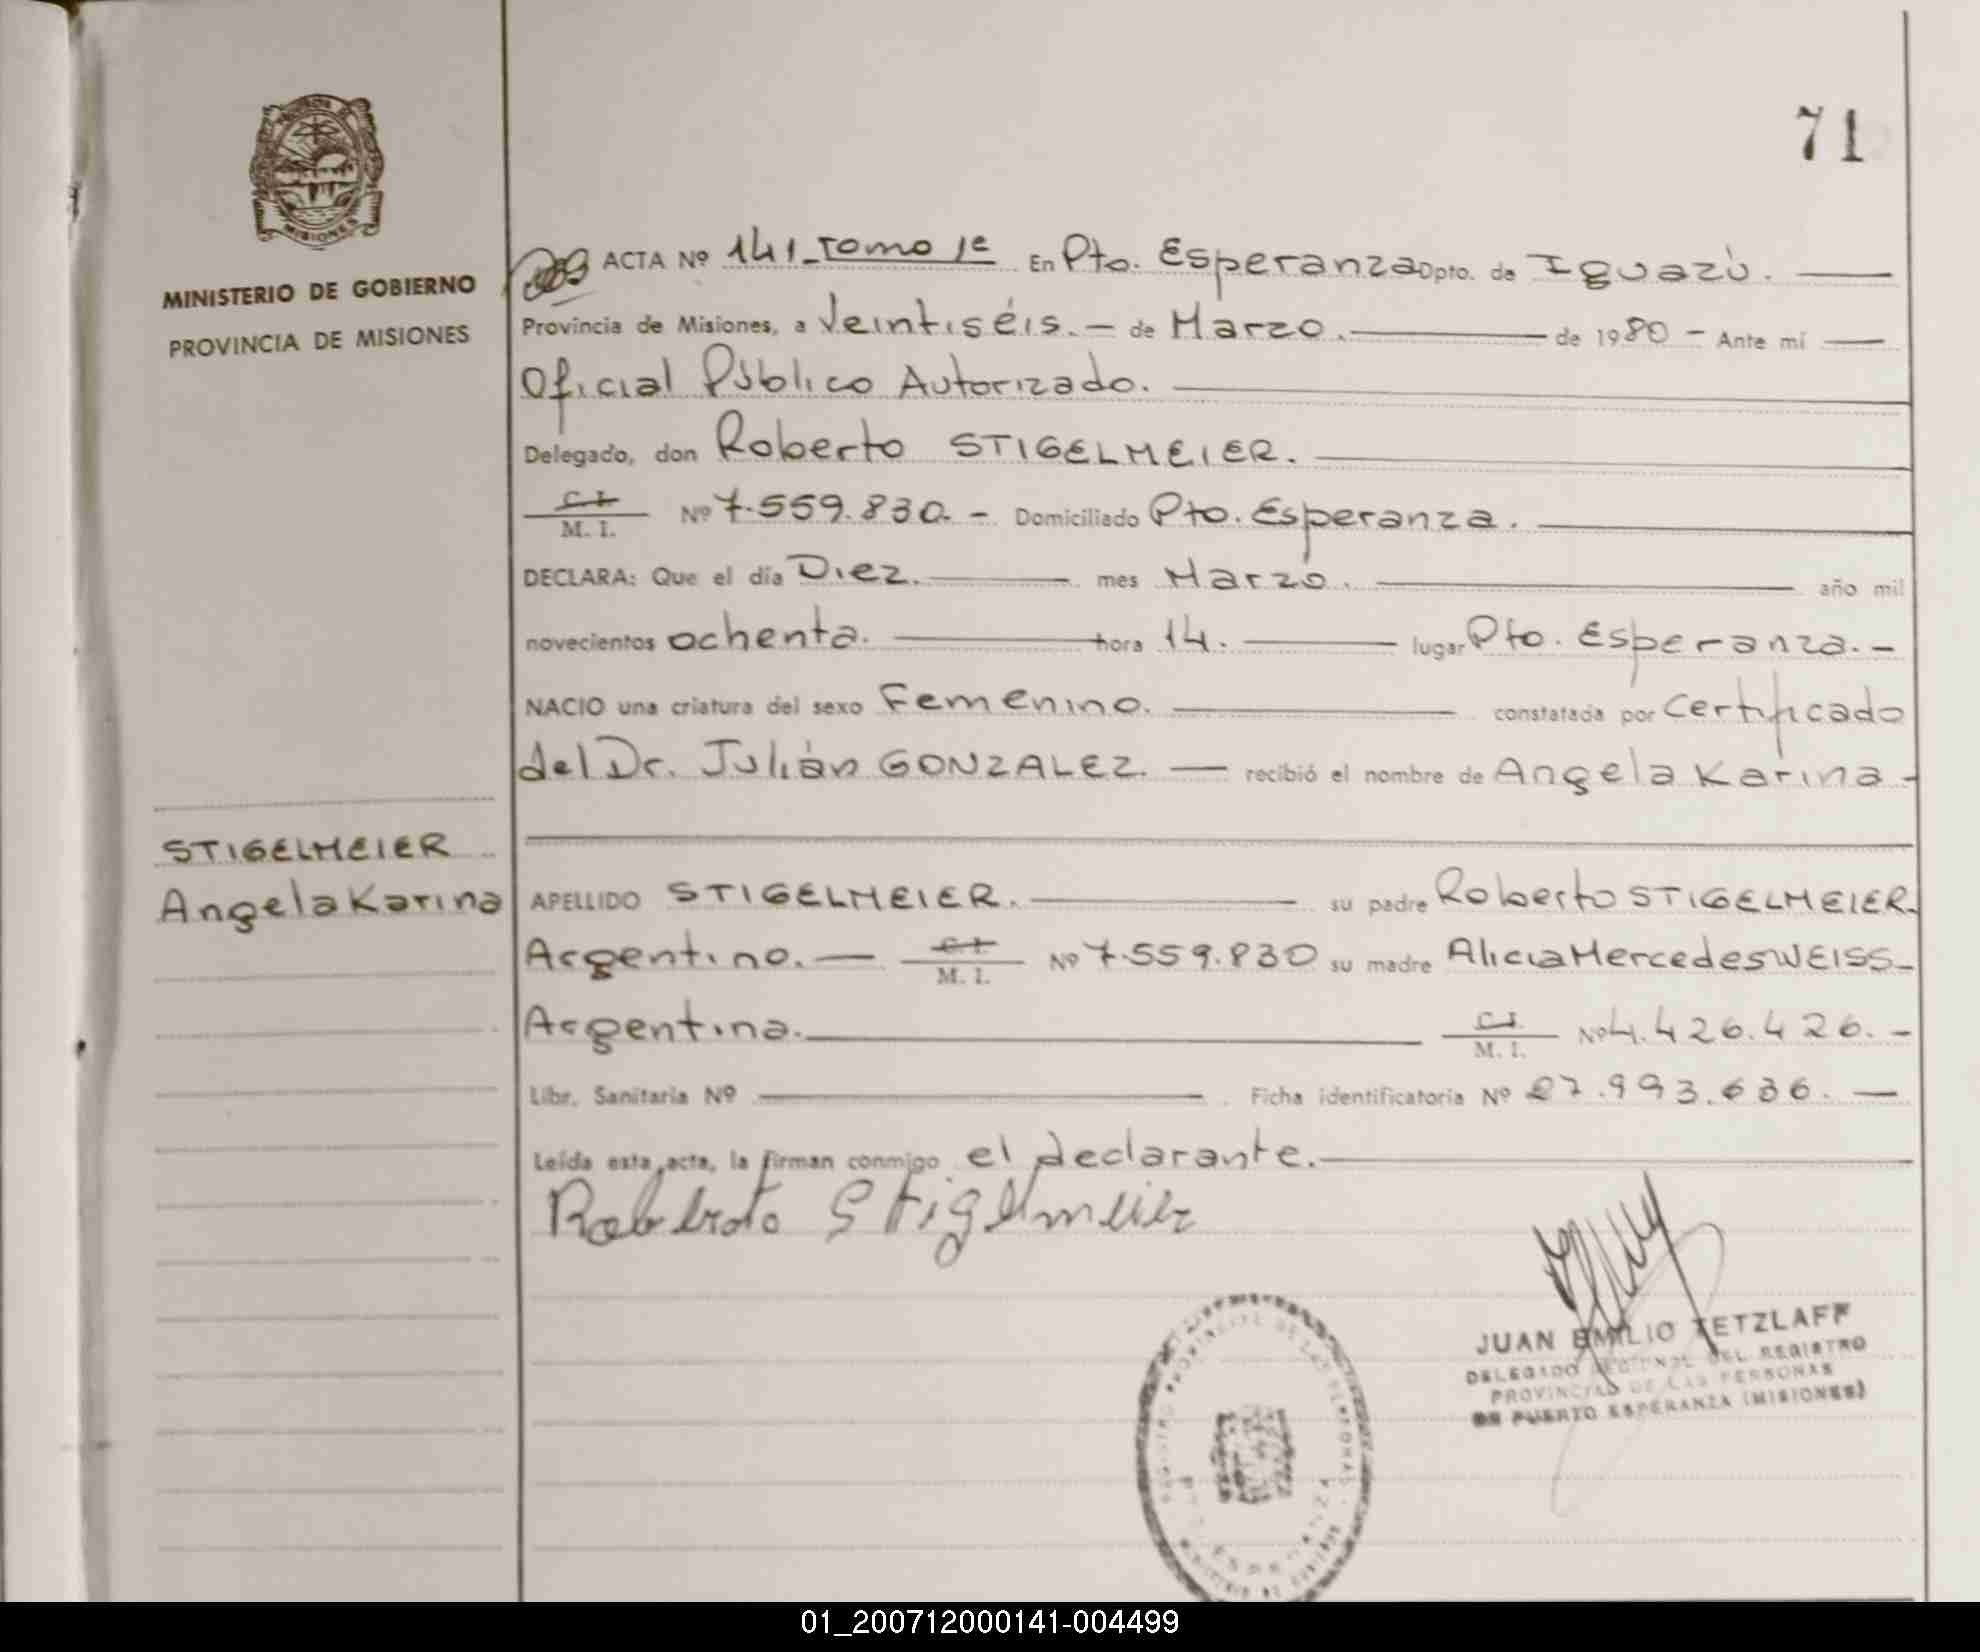 71
MISIONES
MINISTERIO DE GOBIERNO
PROVINCIA DE MISIONES
STIGELMEIER
Angela Karina
ACTA Nº 141_Tomo 1º En Pto. Esperanza Dpto. de Iguazú. —
Provincia de Misiones, a Veintiséis. — de Marzo. — de 1980 — Ante mí —
Oficial Público Autorizado. —
Delegado, don Roberto STIGELMEIER. —
C.I. M. I. Nº 7.559.830. — Domiciliado Pto. Esperanza. —
DECLARA: Que el día Diez. — mes Marzo. — año mil
novecientos ochenta. — hora 14. — lugar Pto. Esperanza. —
NACIO una criatura del sexo Femenino. — constatada por Certificado
del Dr. Julián GONZALEZ. — recibió el nombre de Angela Karina —
APELLIDO STIGELMEIER. — su padre Roberto STIGELMEIER.
Argentino. — C.I. M. I. Nº 7.559.830 su madre Alicia Mercedes WEISS —
Argentina. — C.I. M. I. Nº 4.426.426. —
Libr. Sanitaria Nº — Ficha identificatoria Nº 27.993.636. —
Leída esta acta, la firman conmigo el declarante. —
Roberto Stigelmeier
JUAN EMILIO TETZLAFF
DELEGADO REGIONAL DEL REGISTRO
PROVINCIAL DE LAS PERSONAS
DE PUERTO ESPERANZA (MISIONES)
01_200712000141-004499